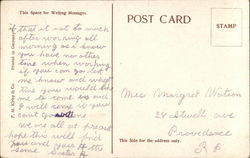 This Space for Writing Messages.
POST CARD
STAMP
if that it not to much
after working all
morning as i know
you have no other
time when working
if you can you let
me know and what
time you would like
me to come up or
I will come if you
cant
we are all at present
hope this will find
you and yours the
some Sister
Mrs Margret Watson
24 Stwell ave
Providence
R I
This Side for the address only.